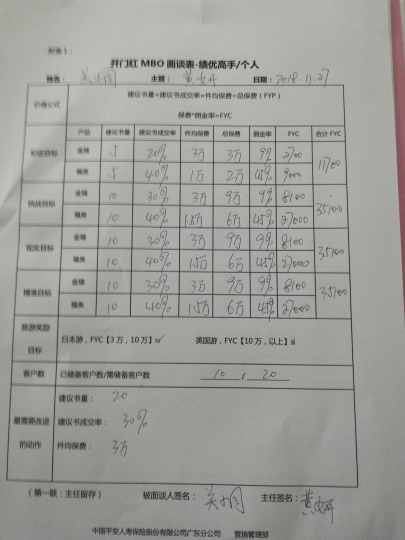 附表1:
开门红 MBO 面谈表-绩优高手/个人
姓名: 主管: 日期: 2018.11.27
价值公式 建议书量*建议书成交率*件均保费=总保费(FYP)
保费*佣金率=FYC
产品 建议书量 建议书成交率 件均保费 总保费 佣金率 FYC 合计 FYC
初始目标 11700
金瑞 5 20% 3万 3万 9% 2700
福奥 5 40% 1万 2万 45% 9000
挑战目标 35100
金瑞 10 30% 3万 9万 9% 8100
福奥 10 40% 1.5万 6万 45% 27000
35100
金瑞 10 30% 3万 9万 9% 8100
福奥 10 40% 1.5万 6万 45% 27000
精准目标 35100
金瑞 10 30% 3万 9万 9% 8100
福奥 10 40% 1.5万 6万 45% 27000
旅游奖励目标 日本游,FYC【3万,10万】☑ 英国游,FYC【10万,以上】
客户数 已储备客户数/需储备客户数 10 / 20
最需要改进的动作
建议书量: 20
建议书成交率: 30%
件均保费: 3万
(第一联:主任留存) 被面谈人签名: 主任签名:
中国平安人寿保险股份有限公司广东分公司 营销管理部